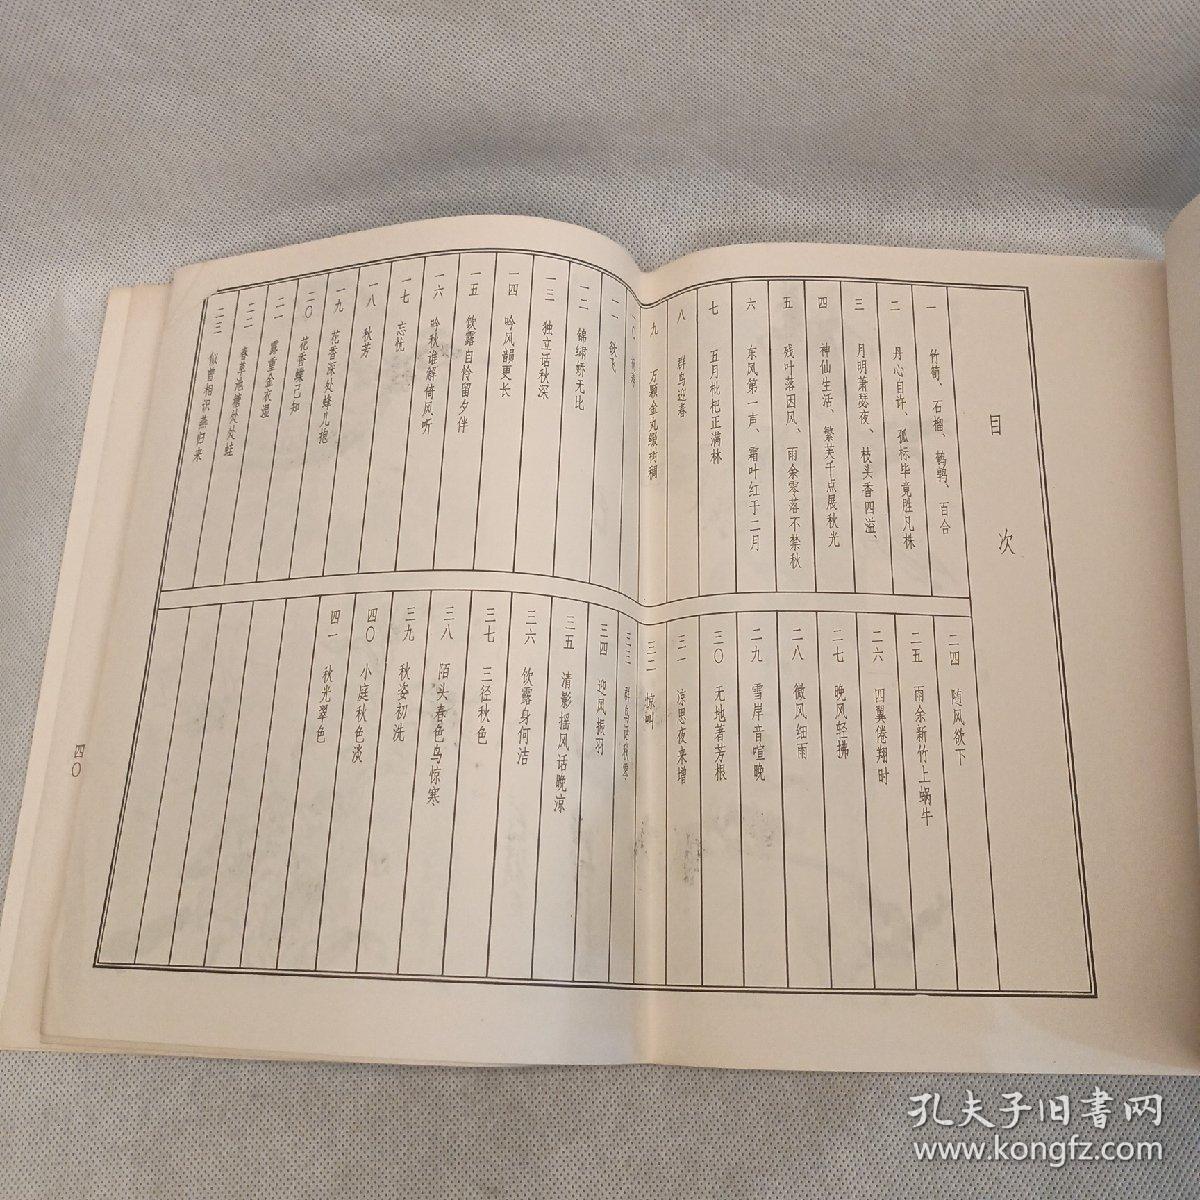 目次
一 竹菊、石榴、鹌鹑、百合
二 丹心自许、孤标毕竟胜凡株
三 月明萧瑟夜、枝头香四溢、
四 神仙生活、繁英千点展秋光
五 残叶落因风、雨余零落不禁秋
六 东风第一声、霜叶红于二月
七 五月枇杷正满林
八 群鸟迎春
九 万颗金丸缀树稠
一〇
一一 欲飞
一二 锦绣娇无比
一三 独立话秋深
一四 吟风韵更长
一五 饮露自怜留夕伴
一六 吟秋谁解倚风听
一七 忘忧
一八 秋芳
一九 花香深处蜂儿抱
二〇 花香蝶已知
二一 露重金衣湿
二二 春草池塘处处蛙
二三 似曾相识燕归来
二四 随风欲下
二五 雨余新竹上蜗牛
二六 四翼倦翔时
二七 晚风轻拂
二八 微风细雨
二九 雪岸音喧晚
三〇 无地著芳根
三一 凉思夜来增
三二 惊叫
三三 群鸟
三四 迎风振羽
三五 清影摇风话晚凉
三六 饮露身何洁
三七 三径秋色
三八 陌头春色鸟惊寒
三九 秋姿初洗
四〇 小庭秋色淡
四一 秋光翠色
四〇
孔夫子旧书网
www.kongfz.com